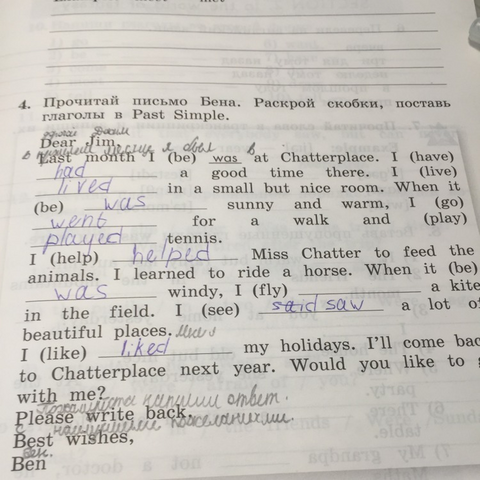 4. Прочитай письмо Бена. Раскрой скобки, поставь
глаголы в Past Simple.
Dear Jim,
в прошлом месяце я был в
Last month I (be) was at Chatterplace. I (have)
had a good time there. I (live)
lived in a small but nice room. When it
(be) was sunny and warm, I (go)
went for a walk and (play)
played tennis.
I (help) helped Miss Chatter to feed the
animals. I learned to ride a horse. When it (be)
was windy, I (fly) a kite
in the field. I (see) said saw a lot of
beautiful places.
I (like) liked my holidays. I'll come bac
to Chatterplace next year. Would you like to g
with me?
Пожалуйста напиши ответ.
Please write back.
с наилучшими пожеланиями.
Best wishes,
Бен.
Ben